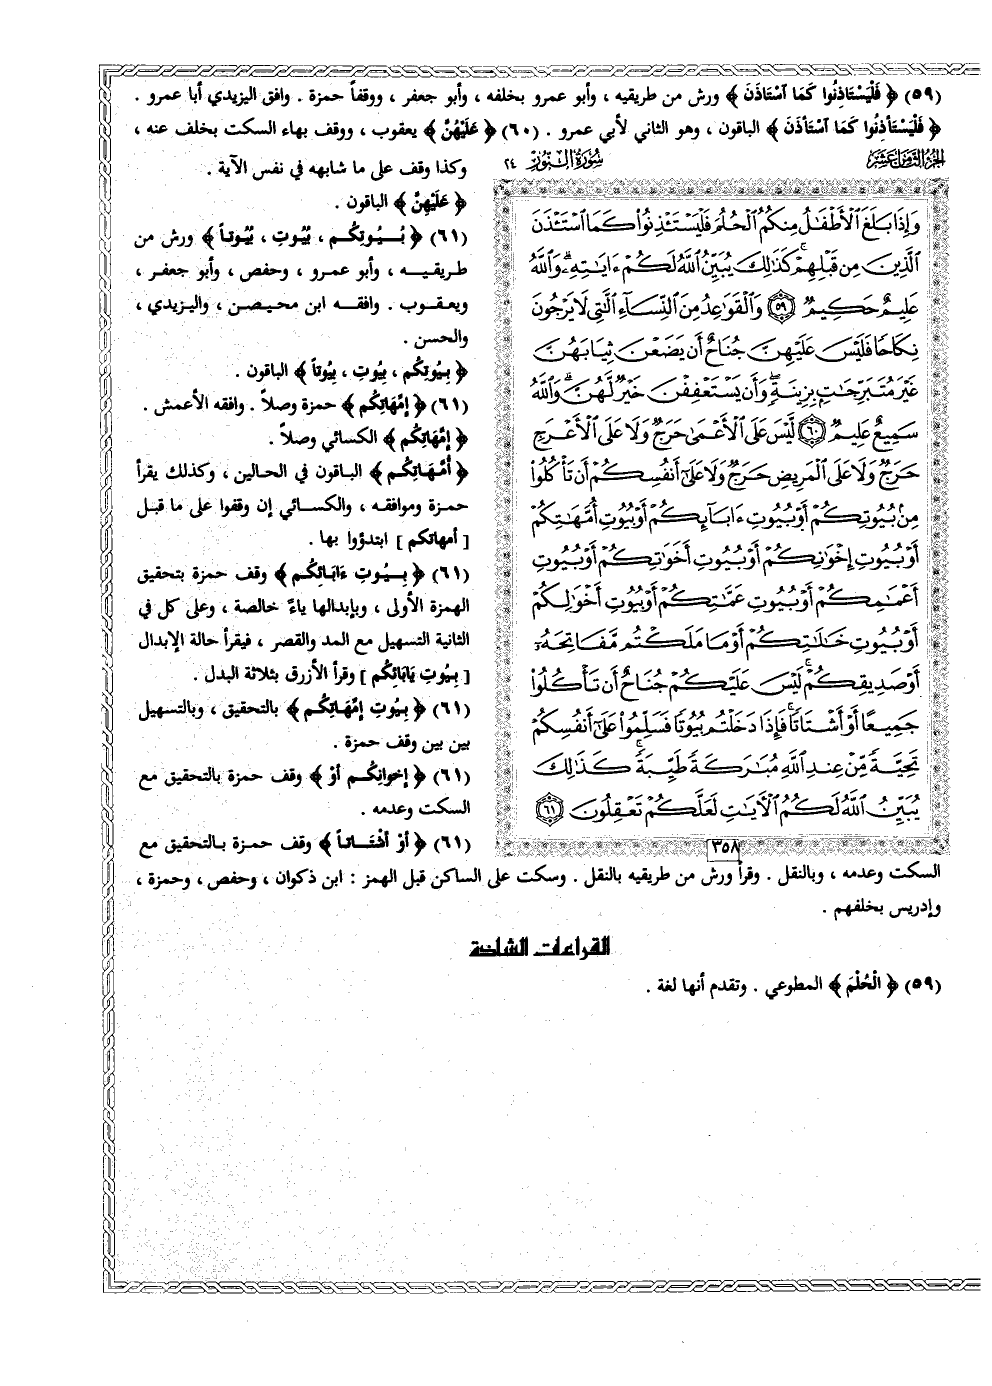 (٥٩) ﴿ فَلْيَسْتَاذِنُوا كَمَا اَسْتَاذَنَ ﴾ ورش من طريقيه ، وأبو عمرو بخلفه ، وأبو جعفر ، ووقفاً حمزة . وافق اليزيدي أبا عمرو .
﴿ فَلْيَسْتَأْذِنُوا كَمَا اَسْتَأْذَنَ ﴾ الباقون ، وهو الثاني لأبي عمرو . (٦٠) ﴿ عَلَيْهُنَّ ﴾ يعقوب ، ووقف بهاء السكت بخلف عنه ،
الجزء الثامن عشر
سورة النور ٢٤
وَإِذَا بَلَغَ ٱلْأَطْفَٰلُ مِنكُمُ ٱلْحُلُمَ فَلْيَسْتَـْٔذِنُوا۟ كَمَا ٱسْتَـْٔذَنَ
ٱلَّذِينَ مِن قَبْلِهِمْ ۚ كَذَٰلِكَ يُبَيِّنُ ٱللَّهُ لَكُمْ ءَايَٰتِهِۦ ۗ وَٱللَّهُ
عَلِيمٌ حَكِيمٌ ٥٩ وَٱلْقَوَٰعِدُ مِنَ ٱلنِّسَآءِ ٱلَّٰتِى لَا يَرْجُونَ
نِكَاحًا فَلَيْسَ عَلَيْهِنَّ جُنَاحٌ أَن يَضَعْنَ ثِيَابَهُنَّ
غَيْرَ مُتَبَرِّجَٰتٍۭ بِزِينَةٍ ۖ وَأَن يَسْتَعْفِفْنَ خَيْرٌ لَّهُنَّ ۗ وَٱللَّهُ
سَمِيعٌ عَلِيمٌ ٦٠ لَّيْسَ عَلَى ٱلْأَعْمَىٰ حَرَجٌ وَلَا عَلَى ٱلْأَعْرَجِ
حَرَجٌ وَلَا عَلَى ٱلْمَرِيضِ حَرَجٌ وَلَا عَلَىٰٓ أَنفُسِكُمْ أَن تَأْكُلُوا۟
مِنۢ بُيُوتِكُمْ أَوْ بُيُوتِ ءَابَآئِكُمْ أَوْ بُيُوتِ أُمَّهَٰتِكُمْ
أَوْ بُيُوتِ إِخْوَٰنِكُمْ أَوْ بُيُوتِ أَخَوَٰتِكُمْ أَوْ بُيُوتِ
أَعْمَٰمِكُمْ أَوْ بُيُوتِ عَمَّٰتِكُمْ أَوْ بُيُوتِ أَخْوَٰلِكُمْ
أَوْ بُيُوتِ خَٰلَٰتِكُمْ أَوْ مَا مَلَكْتُم مَّفَاتِحَهُۥٓ
أَوْ صَدِيقِكُمْ ۚ لَيْسَ عَلَيْكُمْ جُنَاحٌ أَن تَأْكُلُوا۟
جَمِيعًا أَوْ أَشْتَاتًا ۚ فَإِذَا دَخَلْتُم بُيُوتًا فَسَلِّمُوا۟ عَلَىٰٓ أَنفُسِكُمْ
تَحِيَّةً مِّنْ عِندِ ٱللَّهِ مُبَٰرَكَةً طَيِّبَةً ۚ كَذَٰلِكَ
يُبَيِّنُ ٱللَّهُ لَكُمُ ٱلْءَايَٰتِ لَعَلَّكُمْ تَعْقِلُونَ ٦١
٣٥٨
وكذا وقف على ما شابهه في نفس الآية .
﴿ عَلَيْهِنَّ ﴾ الباقون .
(٦١) ﴿ بُيُوتِكُم ، بُيُوتِ ، بُيُوتاً ﴾ ورش من
طريقيه ، وأبو عمرو ، وحفص ، وأبو جعفر ،
ويعقوب . وافقه ابن محيصن ، واليزيدي ،
والحسن .
﴿ بِيُوتِكُم ، بِيُوتِ ، بِيُوتاً ﴾ الباقون .
(٦١) ﴿ إِمِّهَاتِكُم ﴾ حمزة وصلاً . وافقه الأعمش .
﴿ إِمَّهَاتِكُم ﴾ الكسائي وصلاً .
﴿ أُمَّهَاتِكُم ﴾ الباقون في الحالين ، وكذلك يقرأ
حمزة وموافقه ، والكسائي إن وقفوا على ما قبل
[ أمهاتكم ] ابتدؤوا بها .
(٦١) ﴿ بِيُوتِ ءَابَائِكُم ﴾ وقف حمزة بتحقيق
الهمزة الأولى ، وبإبدالها ياءً خالصة ، وعلى كل في
الثانية التسهيل مع المد والقصر ، فيقرأ حالة الإبدال
[ بِيُوتِ يَابَائِكُم ] وقرأ الأزرق بثلاثة البدل .
(٦١) ﴿ بِيُوتِ إِمِّهَاتِكُم ﴾ بالتحقيق ، وبالتسهيل
بين بين وقف حمزة .
(٦١) ﴿ إخوانِكُم أوْ ﴾ وقف حمزة بالتحقيق مع
السكت وعدمه .
(٦١) ﴿ أوْ أشْتَاتاً ﴾ وقف حمزة بالتحقيق مع
السكت وعدمه ، وبالنقل . وقرأ ورش من طريقيه بالنقل . وسكت على الساكن قبل الهمز : ابن ذكوان ، وحفص ، وحمزة ،
وإدريس بخلفهم .
القراءات الشاذة
(٥٩) ﴿ الْحُلْمَ ﴾ المطوعي . وتقدم أنها لغة .